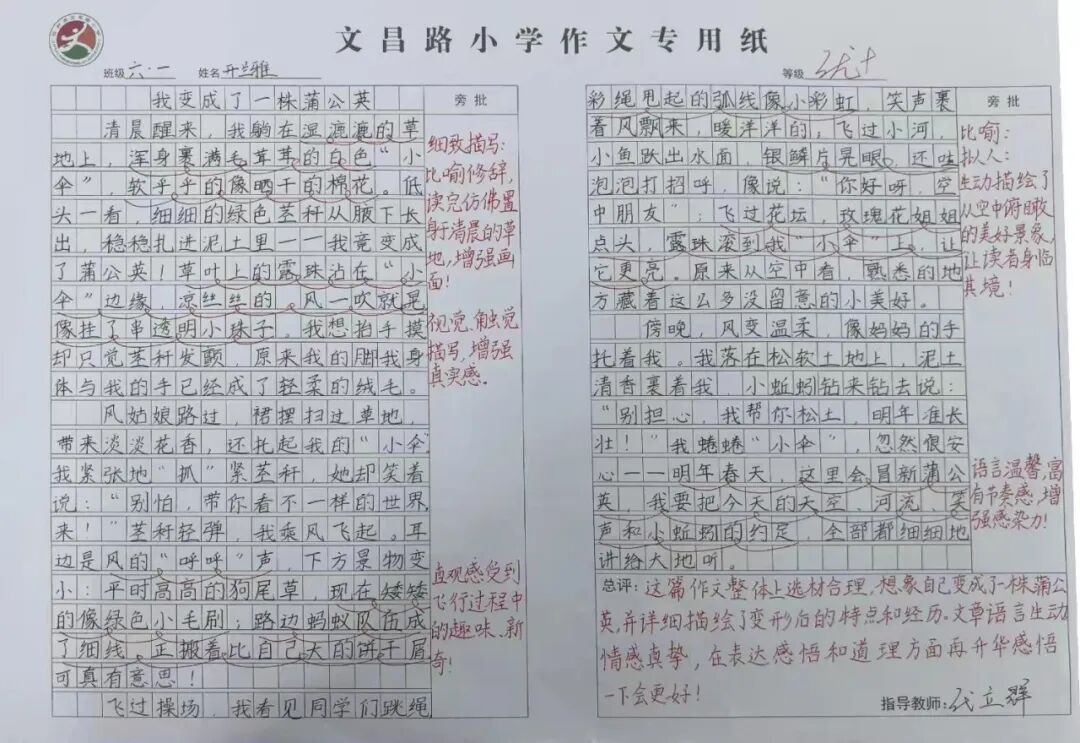 文昌路小学作文专用纸
班级 六·一 姓名 等级 优+
我变成了一株蒲公英
旁批
清晨醒来，我躺在湿漉漉的草
地上，浑身裹满毛茸茸的白色“小
伞”，软乎乎的像晒干的棉花。低
头一看，细细的绿色茎秆从腋下长
出，稳稳扎进泥土里——我竟变成
了蒲公英！草叶上的露珠沾在“小
伞”边缘，凉丝丝的，风一吹就晃
像挂了串透明小珠子。我想抬手摸
却只觉茎秆发颤 原来我的脚我身
体与我的手已经成了轻柔的绒毛。
风姑娘路过，裙摆扫过草地，
带来淡淡花香，还托起我的“小伞”
我紧张地“抓”紧茎秆，她却笑着
说：“别怕，带你看不一样的世界，
来！”茎秆轻弹，我乘风飞起。耳
边是风的“呼呼”声，下方景物变
小：平时高高的狗尾草，现在矮矮
的像绿色小毛刷；路边蚂蚁队伍成
了细线，正搬着比自己大的饼干屑
可真有意思！
飞过操场，我看见同学们跳绳
细致描写：
比喻修辞，
读完仿佛置
身于清晨的草
地，增强画
面！
视觉、触觉
描写，增强
真实感。
直观感受到
飞行过程中
的趣味、新
奇！
彩绳甩起的弧线像小彩虹，笑声裹
着风飘来，暖洋洋的，飞过小河，
小鱼跃出水面，银鳞片晃眼，还吐
泡泡打招呼，像说：“你好呀，空
中朋友”；飞过花坛，玫瑰花姐姐
点头，露珠滚到我“小伞”上，让
它更亮。原来从空中看，熟悉的地
方藏着这么多没留意的小美好。
傍晚，风变温柔，像妈妈的手
托着我。我落在松软土地上 泥土
清香裹着我 小蚯蚓钻来钻去说：
“别担心，我帮你松土，明年准长
壮！”我蜷蜷“小伞”，忽然很安
心——明年春天，这里会冒新蒲公
英，我要把今天的天空、河流、笑
声和小蚯蚓的约定，全部都细细地
讲给大地听。
旁批
比喻：
拟人：
生动描绘了
从空中俯瞰
的美好景象，
让读者身临
其境！
语言温馨，富
有节奏感，增
强感染力！
总评：这篇作文整体上选材合理，想象自己变成了一株蒲公
英，并详细描绘了变形后的特点和经历。文章语言生动
情感真挚，在表达感悟和道理方面再升华感悟
一下会更好！
指导教师：代立群